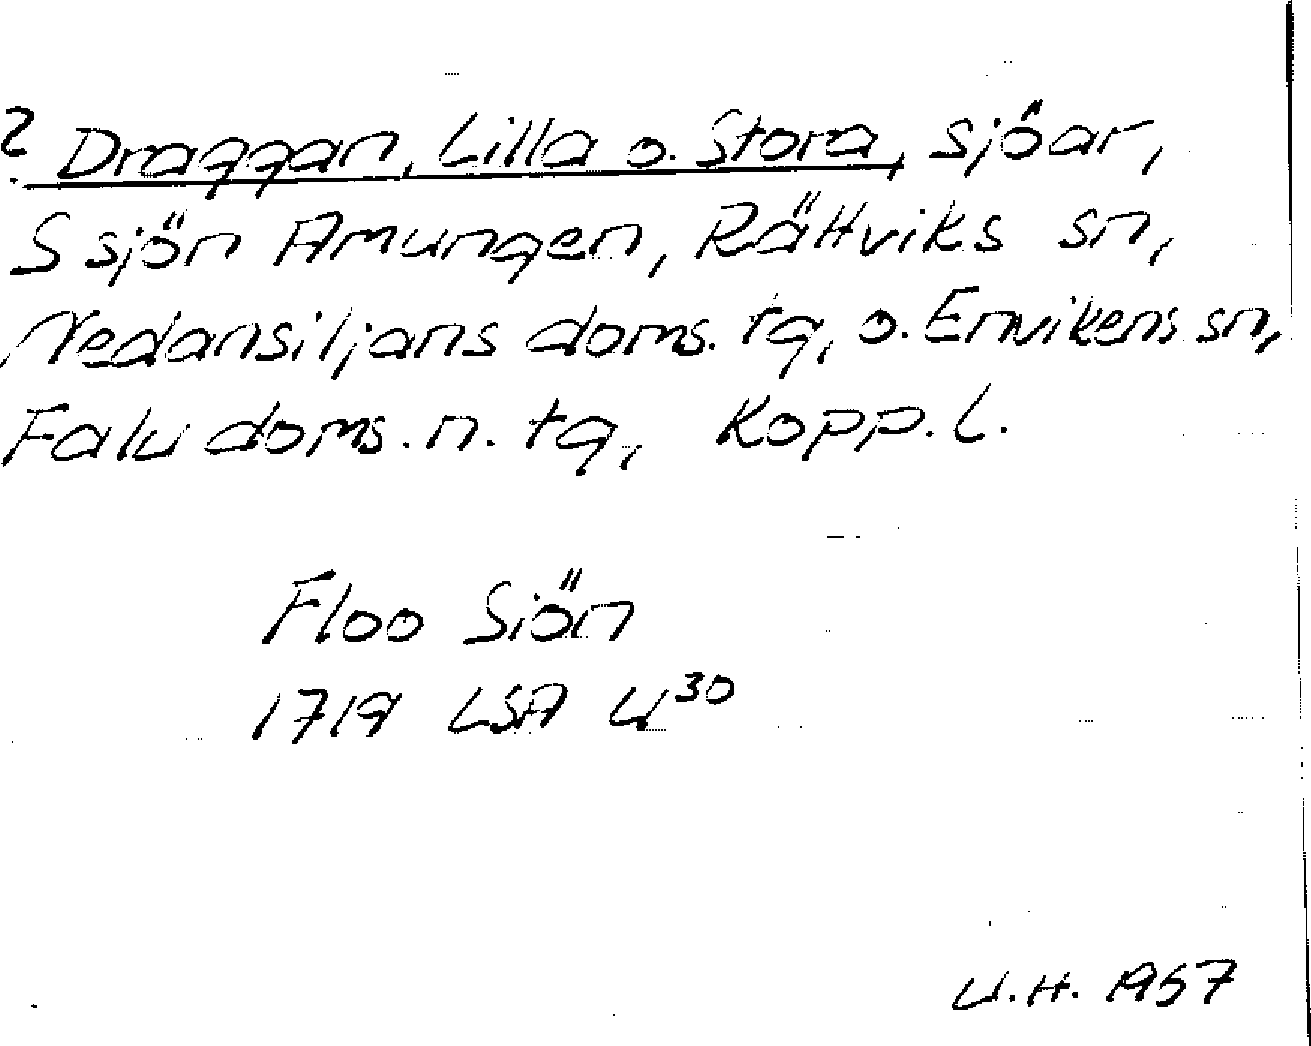 ? Draggan, Lilla o. Stora, sjöar,
S sjön Amungen, Rättviks sn,
Nedansiljans doms. tg, o. Envikens sn,
Falu doms. n. tg, Kopp. l.
Floo Siön
1719 LSA U³⁰
U.H. 1957